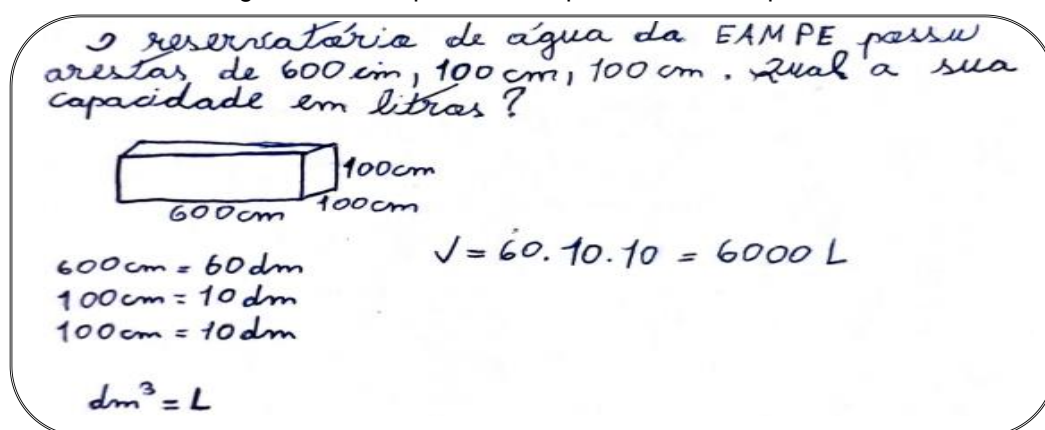 O reservatório de água da EAMPE possui
arestas de 600 cm, 100 cm, 100 cm. Qual a sua
capacidade em litros?
100cm
600cm 100cm
600cm = 60dm
V = 60.10.10 = 6000 L
100cm = 10dm
100cm = 10dm
dm³ = L